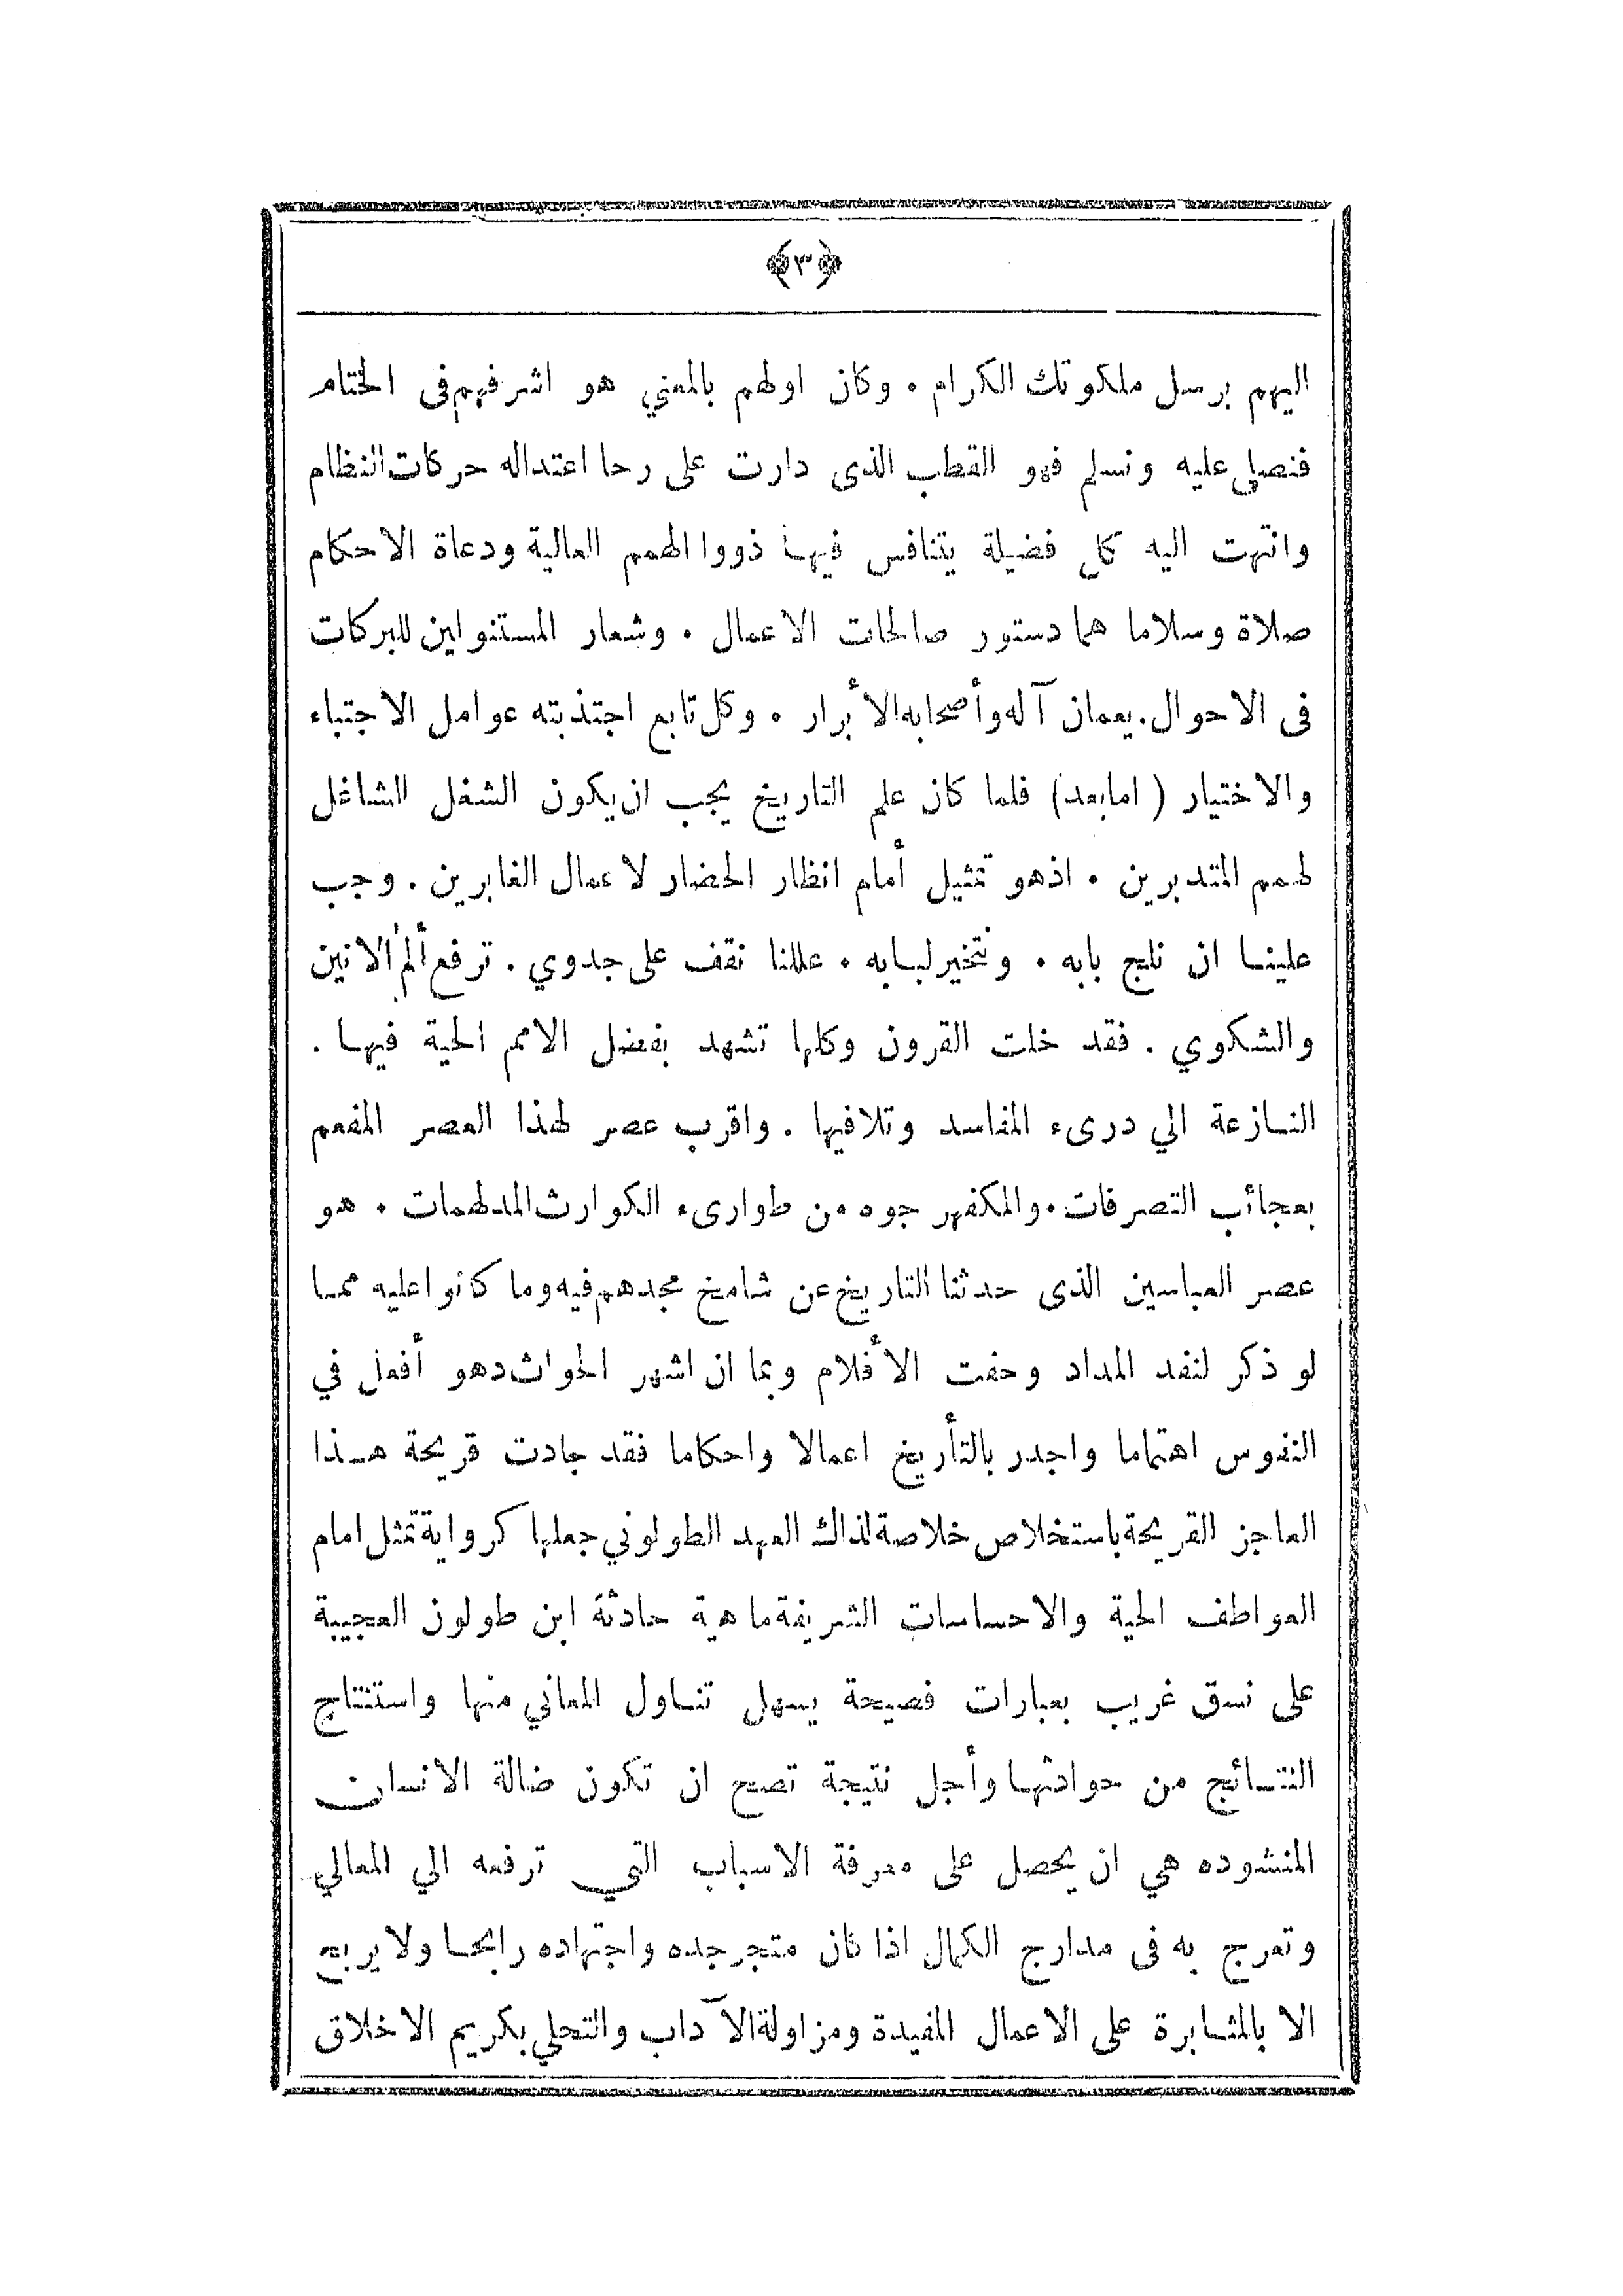 ﴿٣﴾
اليهم برسل ملكوتك الكرام . وكان اولهم بالمعني هو اشرفهم فى الختام
فنصلي عليه ونسلم فهو القطب الذى دارت على رحا اعتداله حركات النظام
وانتهت اليه كل فضيلة يتنافس فيها ذووا الهمم العالية ودعاة الاحكام
صلاة وسلاما هما دستور صالحات الاعمال . وشعار المستنولين للبركات
فى الاحوال . يعمان آله وأصحابه الأبرار . وكل تابع اجتذبته عوامل الاجتباء
والاختيار ( امابعد) فلما كان علم التاريخ يجب ان يكون الشغل الشاغل
لهمم المتدبرين . اذهو تمثيل أمام انظار الحضار لاعمال الغابرين . وجب
علينا ان نلج بابه . ونتخير لبابه . عللنا نقف على جدوي . ترفع ألم الانين
والشكوي . فقد خلت القرون وكلها تشهد بفضل الامم الحية فيها .
النازعة الي درىء المفاسد وتلافيها . واقرب عصر لهذا العصر المفعم
بعجائب التصرفات . والمكفهر جوه من طوارىء الكوارث المدلهمات . هو
عصر العباسين الذى حدثنا التاريخ عن شامخ مجدهم فيه وما كانوا عليه مما
لو ذكر لنفد المداد وحفت الأقلام وبما ان اشهر الحواث دهو أفعل في
النفوس اهتماما واجدر بالتأريخ اعمالا واحكاما فقد جادت قريحة هذا
العاجز القريحة باستخلاص خلاصة لذاك العهد الطولوني جعلها كرواية تمثل امام
العواطف الحية والاحساسات الشريفة ماهية حادثة ابن طولون العجيبة
على نسق غريب بعبارات فصيحة يسهل تناول المعاني منها واستنتاج
النتائج من حوادثها وأجل نتيجة تصح ان تكون ضالة الانسان
المنشوده هي ان يحصل على معرفة الاسباب التي ترفعه الي المعالي
وتعرج به فى مدارج الكمال اذا كان متجر جده واجتهاده رابحا ولا يربح
الا بالمثابرة على الاعمال المفيدة ومزاولة الآداب والتحلي بكريم الاخلاق